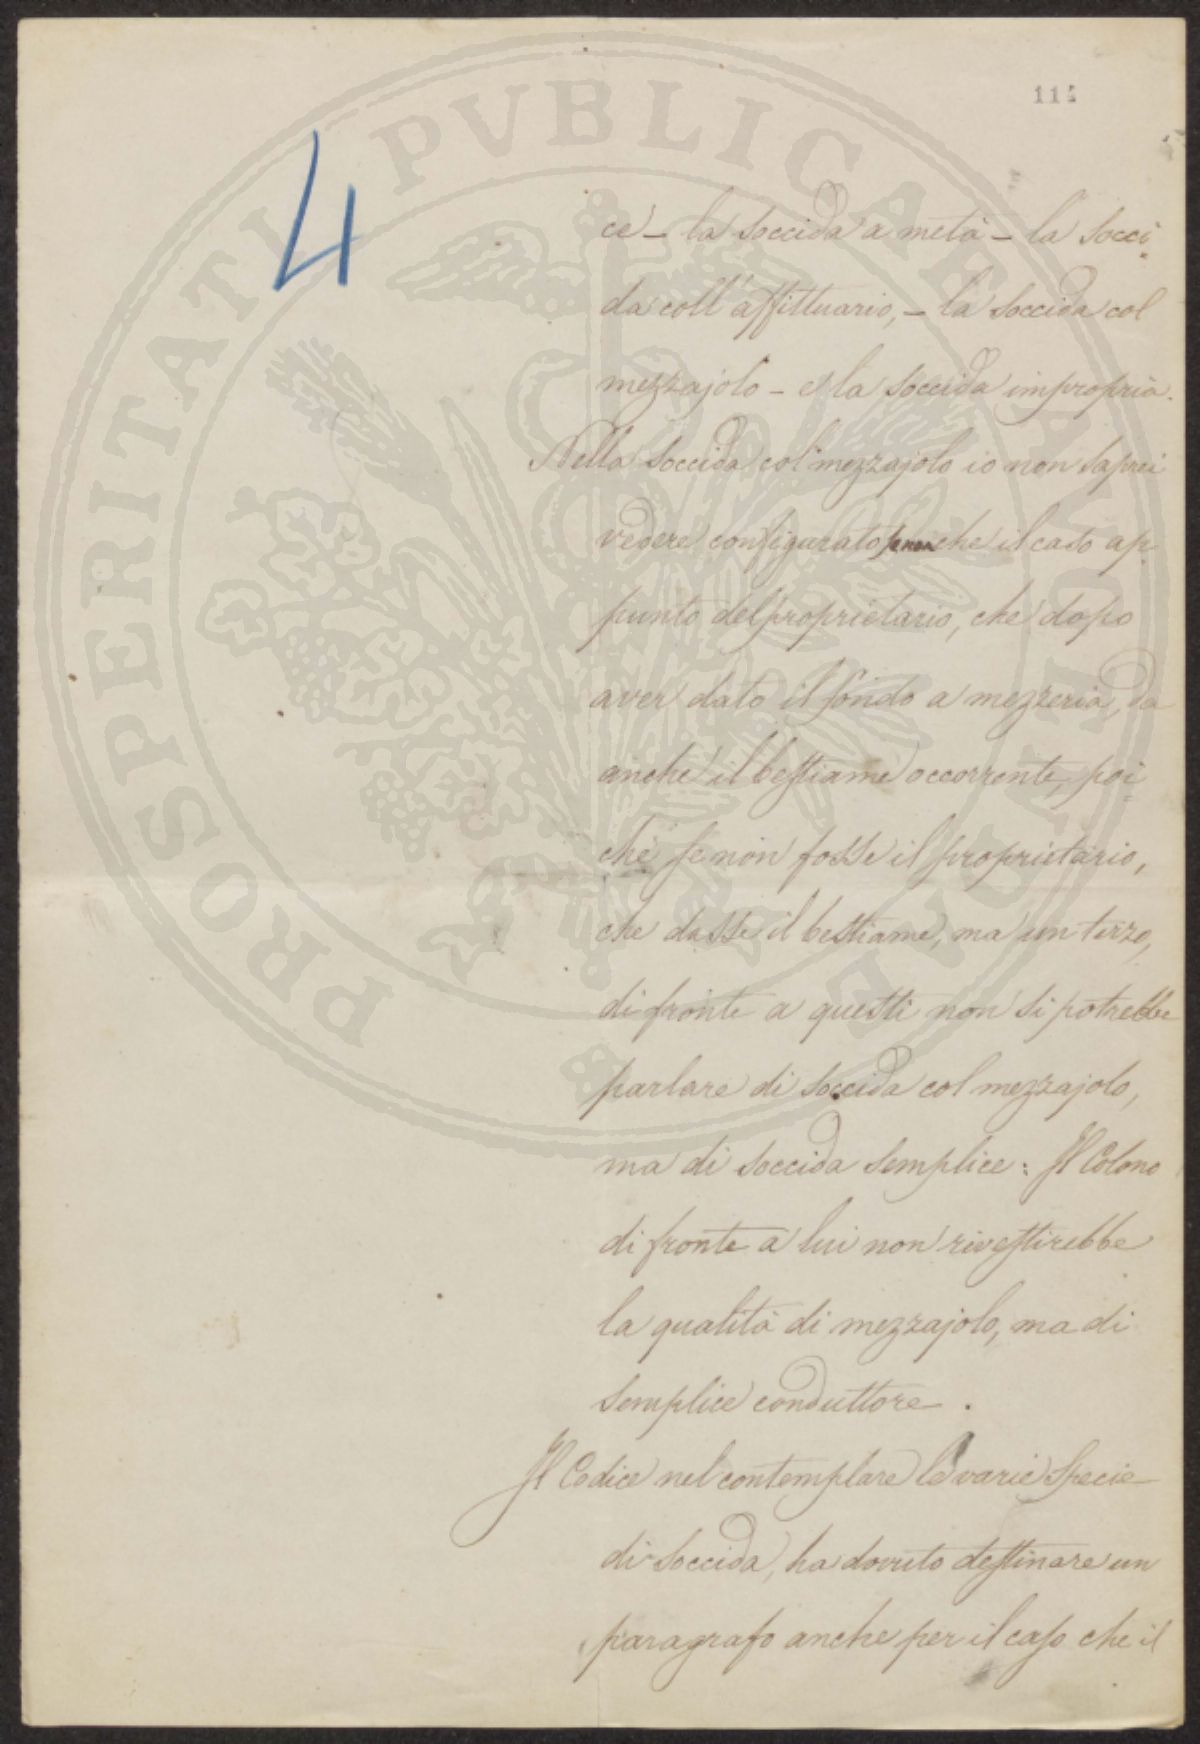 114
4
ce – la soccida a metà – la socci=
da coll'affittuario, – la soccida col
mezzajolo – e la soccida impropria.
Nella soccida col mezzajolo io non saprei
vedere configurato se non che il caso ap-
punto del proprietario, che dopo
aver dato il fondo a mezzeria, da
anche il bestiame occorrente, poi=
chè se non fosse il proprietario,
che dasse il bestiame, ma un terzo,
di fronte a questi non si potrebbe
parlare di soccida col mezzajolo,
ma di soccida semplice: Il Colono
di fronte a lui non rivestirebbe
la qualità di mezzajolo, ma di
semplice conduttore.
Il Codice nel contemplare le varie specie
di soccida, ha dovuto destinare un
paragrafo anche per il caso che il
PROSPERITATI PVBLICAE AVGENDAE